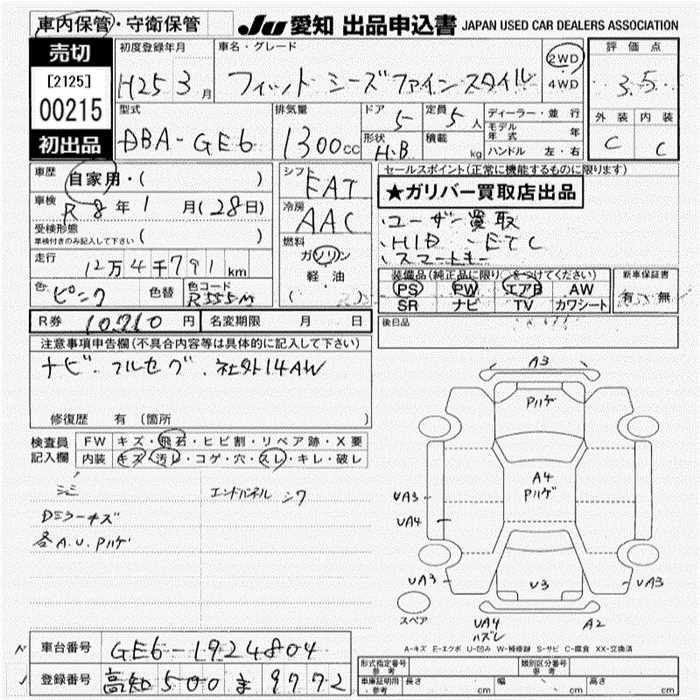 車内保管・守衛保管
JU 愛知 出品申込書 JAPAN USED CAR DEALERS ASSOCIATION
売切
[2125]
00215
初出品
初度登録年月
H25 3 月
車名・グレード
フィット シーズファインスタイル
2WD
4WD
評価点
3.5
外装 内装
C C
型式
DBA-GE6
排気量
1300 CC
ドア
5
定員
5 人
形状
H.B
積載
kg
ディーラー・並行
モデル年式 年
ハンドル 左・右
車歴
自家用・( )
車検
R 8 年 1 月(28日)
受検形態
車検付きのみ記入して下さい ( )
走行
12万4千791 km
色
ピンク
色替
色コード
R555M
シフト
FAT
冷房
AAC
燃料
ガソリン
軽・油
( )
セールスポイント(正常に機能するものに限ります)
★ガリバー買取店出品
・ユーザー買取
・HID ・ETC
・スマートキー
装備品(純正品に限り○をつけてください)
PS PW エアB AW
SR ナビ TV カワシート
新車保証書
有・無
後日品
R券 10,710 円
名変期限 月 日
注意事項申告欄(不具合内容等は具体的に記入して下さい)
ナビ・フルセグ・社外14AW
修復歴 有 (箇所 )
検査員
記入欄
FW キズ・飛石・ヒビ割・リペア跡・X要
内装 キズ・汚レ・コゲ・穴・スレ・キレ・破レ
シミ
エンドパネル シワ
Dミラーキズ
各A.U.Pハゲ
A3
Pハゲ
A4
Pハゲ
UA3
UA4
UA3
U3
UA3
UA4
ハズレ
A2
スペア
A-キズ E-エクボ U-凹み W-補修跡 S-サビ C-腐食 XX-交換済
車台番号 GE6-1924804
登録番号 高知 500 ま 9772
形式指定番号
参考
類別区分番号
参考
車庫証明用
・参考
長さ cm
幅 cm
高さ cm